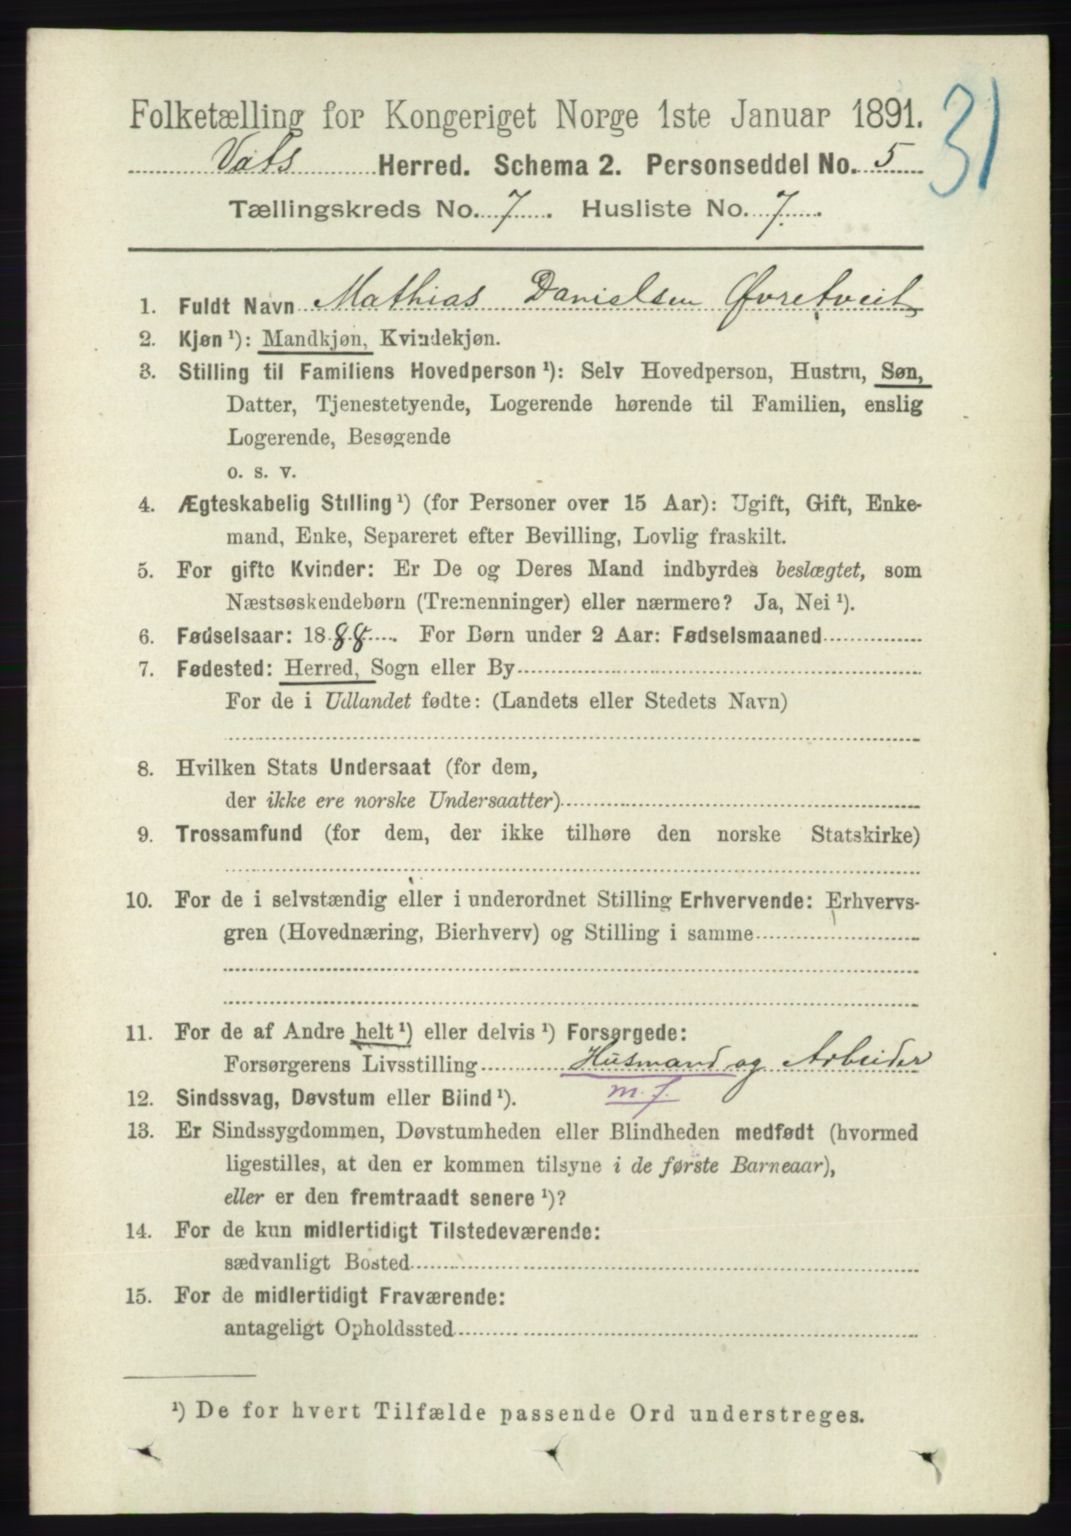 31
Folketælling for Kongeriget Norge 1ste Januar 1891.
Vats Herred. Schema 2. Personseddel No. 5
Tællingskreds No. 7. Husliste No. 7.
1. Fuldt Navn Mathias Danielsen Øvretveit
2. Kjøn ¹): Mandkjøn, Kvindekjøn.
3. Stilling til Familiens Hovedperson ¹): Selv Hovedperson, Hustru, Søn,
Datter, Tjenestetyende, Logerende hørende til Familien, enslig
Logerende, Besøgende
o. s. v.
4. Ægteskabelig Stilling ¹) (for Personer over 15 Aar): Ugift, Gift, Enke-
mand, Enke, Separeret efter Bevilling, Lovlig fraskilt.
5. For gifte Kvinder: Er De og Deres Mand indbyrdes beslægtet, som
Næstsøskendebørn (Tremenninger) eller nærmere? Ja, Nei ¹).
6. Fødselsaar: 1888. For Børn under 2 Aar: Fødselsmaaned
7. Fødested: Herred, Sogn eller By
For de i Udlandet fødte: (Landets eller Stedets Navn)
8. Hvilken Stats Undersaat (for dem,
der ikke ere norske Undersaatter)
9. Trossamfund (for dem, der ikke tilhøre den norske Statskirke)
10. For de i selvstændig eller i underordnet Stilling Erhvervende: Erhvervs-
gren (Hovednæring, Bierhverv) og Stilling i samme
11. For de af Andre helt ¹) eller delvis ¹) Forsørgede:
Forsørgerens Livsstilling Husmand og Arbeider
m. j.
12. Sindssvag, Døvstum eller Blind ¹).
13. Er Sindssygdommen, Døvstumheden eller Blindheden medfødt (hvormed
ligestilles, at den er kommen tilsyne i de første Barneaar),
eller er den fremtraadt senere ¹)?
14. For de kun midlertidigt Tilstedeværende:
sædvanligt Bosted
15. For de midlertidigt Fraværende:
antageligt Opholdssted
¹) De for hvert Tilfælde passende Ord understreges.